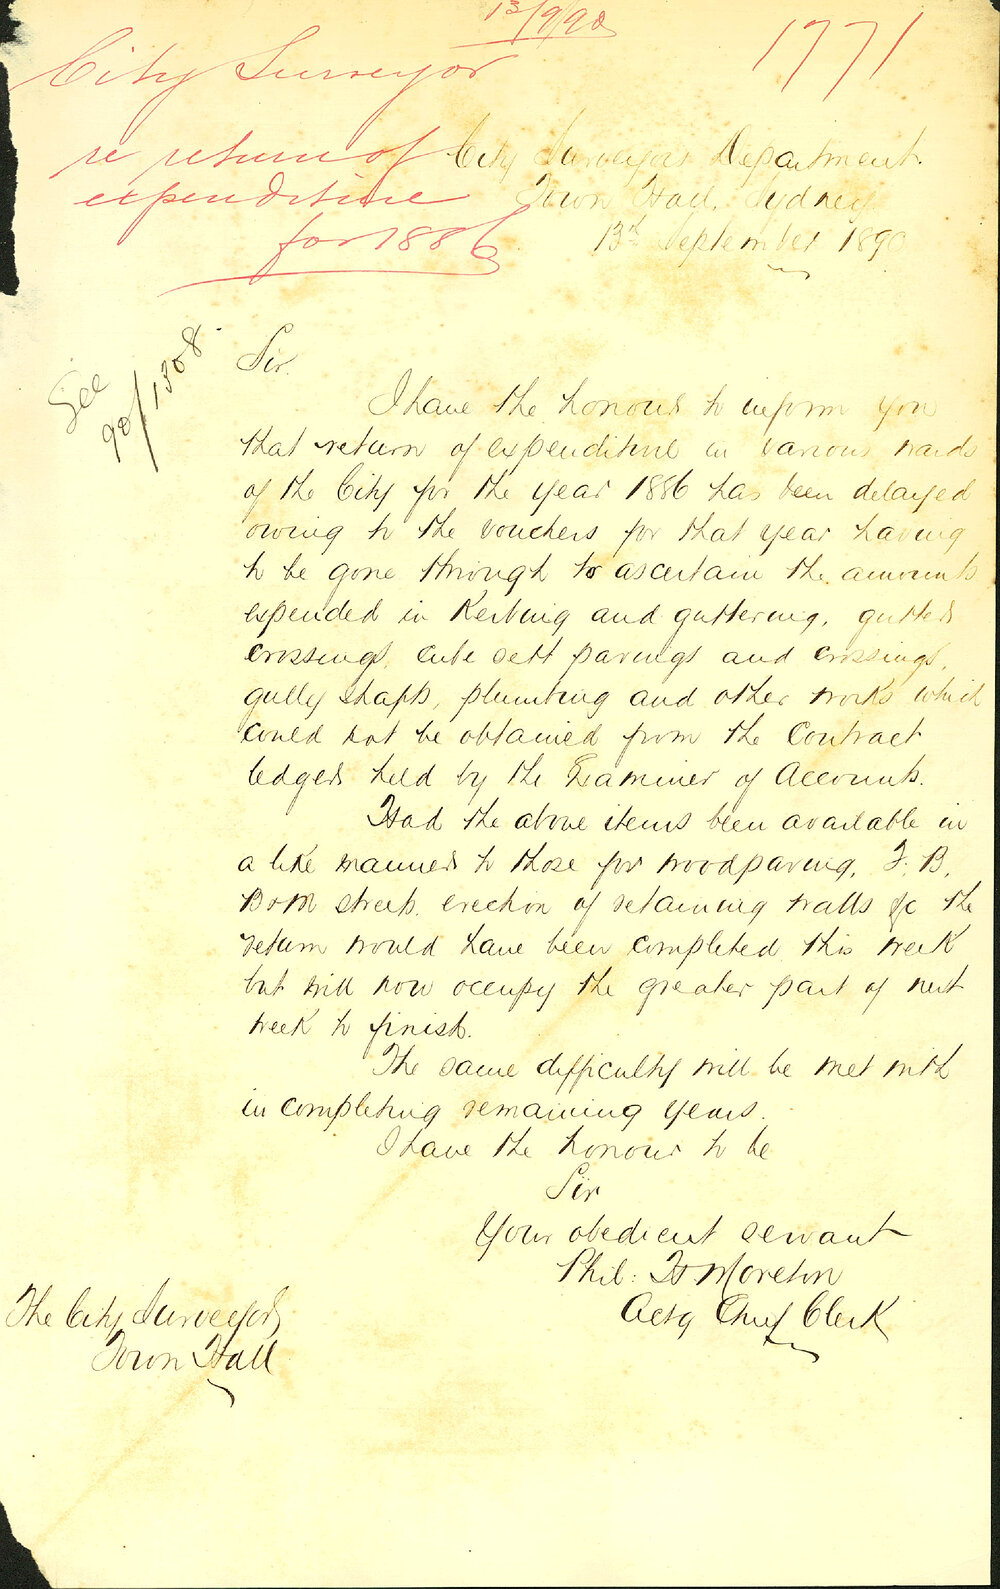 13/9/90
1771
City Surveyor
re return of
expenditure
for 1886
City Surveyors Department
Town Hall, Sydney
13th September 1890
See
90/1308
Sir
I have the honour to inform you
that return of expenditure in various wards
of the City for the year 1886 has been delayed
owing to the vouchers for that year having
to be gone through to ascertain the amounts
expended in Kerbing and guttering, gutter
crossings, cube sett pavings and crossings,
gully shafts, plumbing and other works which
could not be obtained from the Contract
ledgers held by the Examiner of Accounts.
Had the above items been available in
a like manner to those for woodpaving, F. B.
B & M streets, erection of retaining walls &c the
return would have been completed this week
but will now occupy the greater part of next
week to finish.
The same difficulty will be met with
in completing remaining years.
I have the honour to be
Sir
Your obedient servant
Phil: H Moreton
Actg Chief Clerk
The City Surveyor
Town Hall